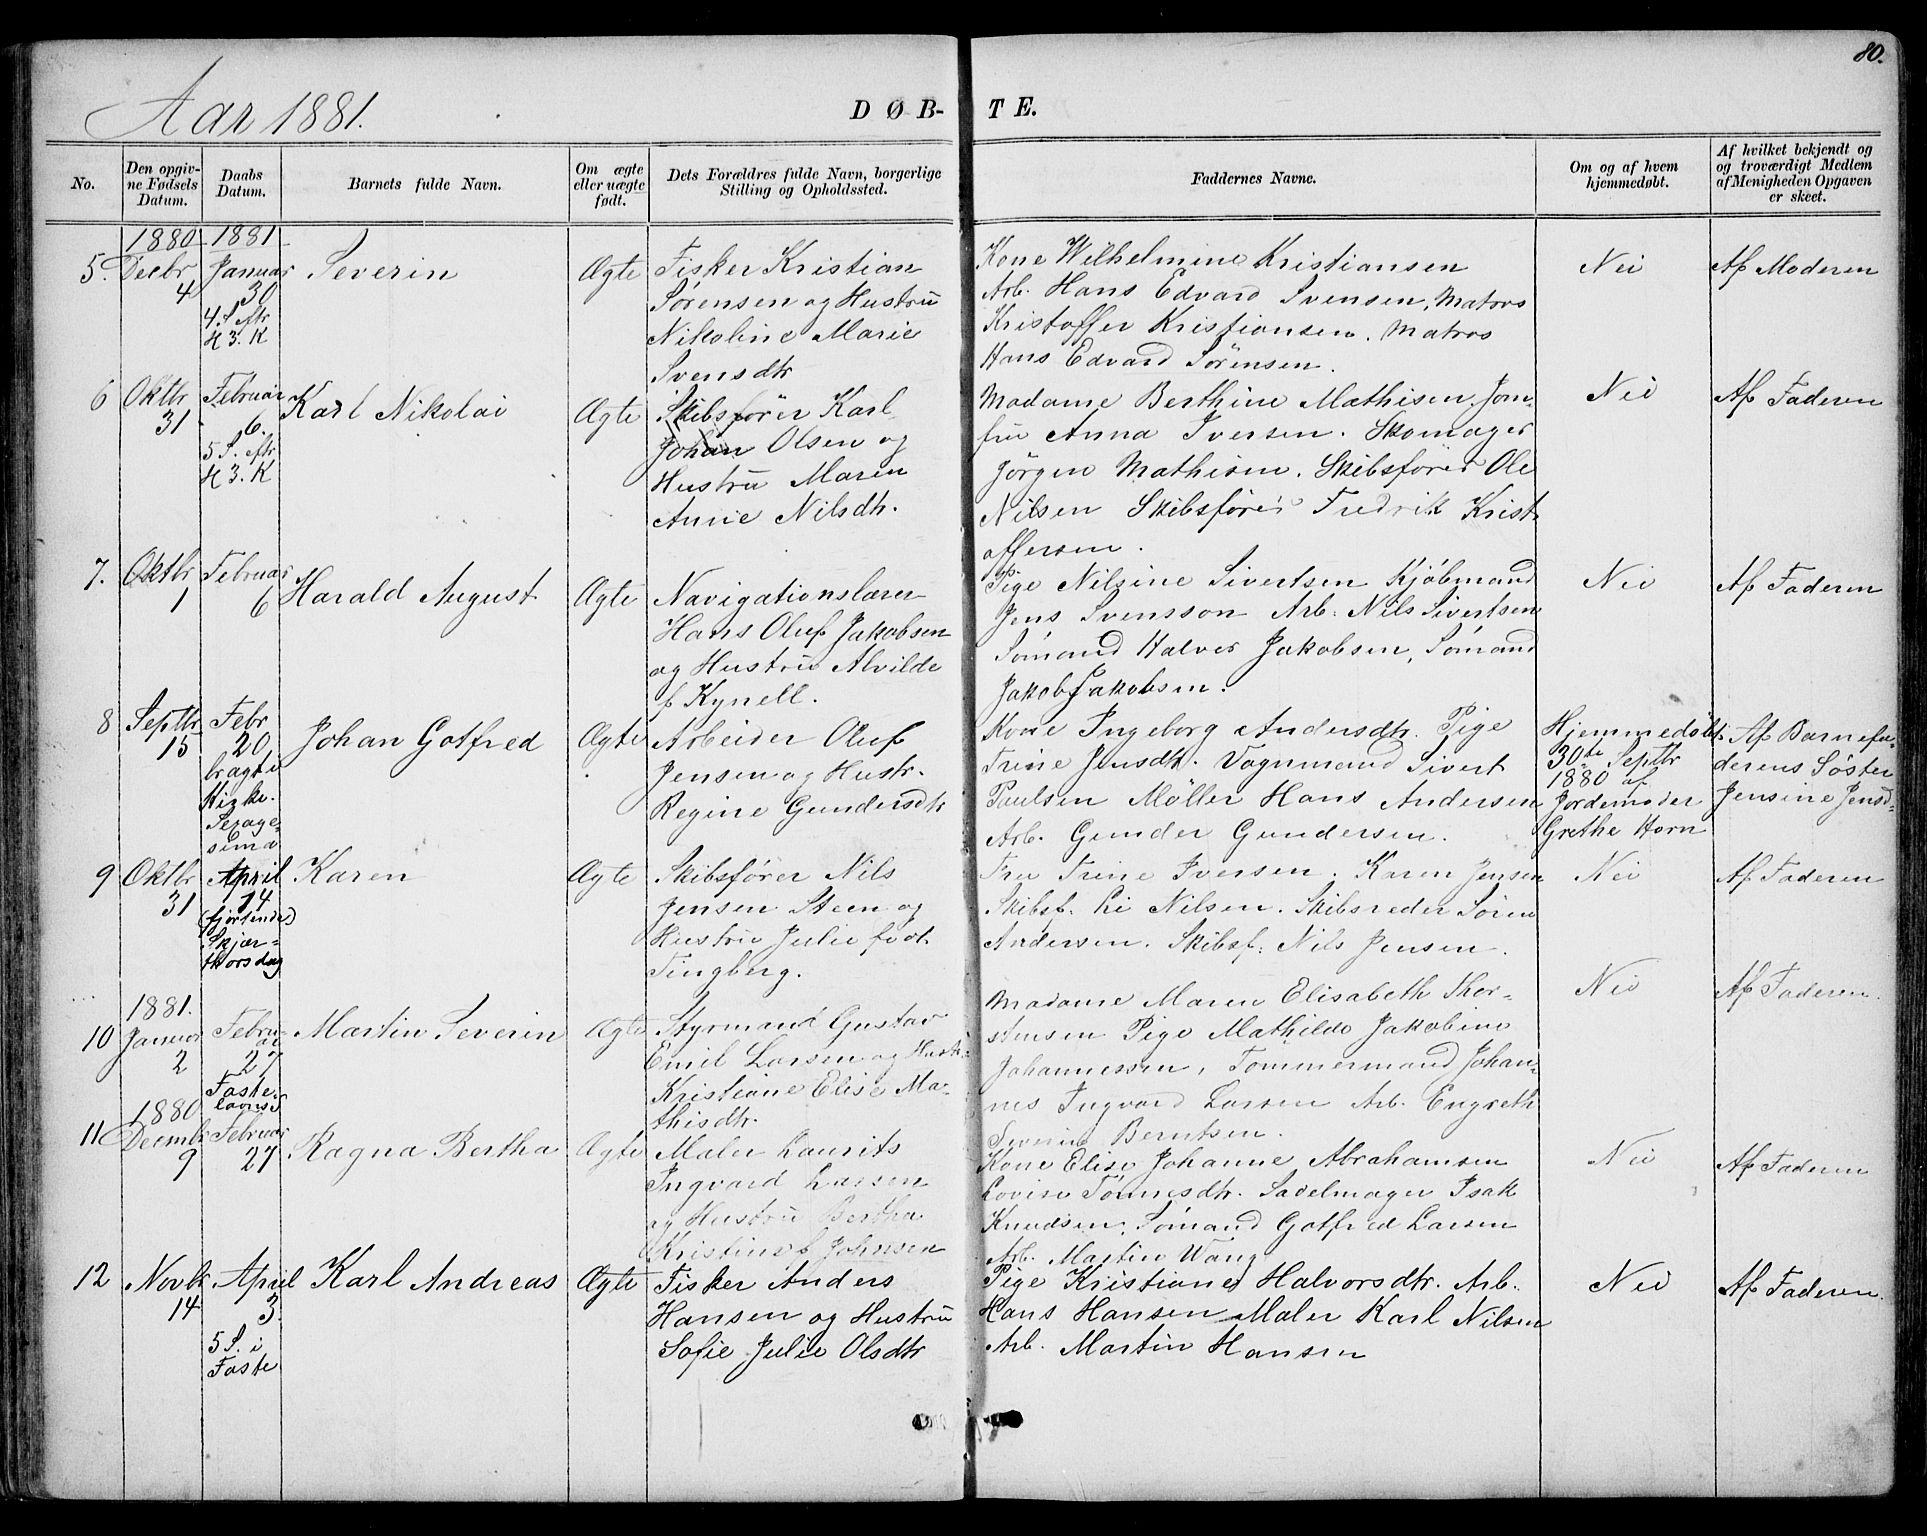 80.
Aar 1881.
DØB-TE.
No.
Den opgiv-
ne Fødsels
Datum.
Daabs
Datum.
Barnets fulde Navn.
Om ægte
eller uægte
født.
Dets Forældres fulde Navn, borgerlige
Stilling og Opholdssted.
Faddernes Navne.
Om og af hvem
hjemmedøbt.
Af hvilket bekjendt og
og troværdigt Medlem
af Menigheden Opgaven
er skeet.
1880
1881
5.
Decbr
4
Januar
30
4. S. eftr
H 3. K
Severin
Ægte
Fisker Kristian
Sørensen og Hustru
Nikoline Marie
Svensdtr
Kone Wilhelmine Kristiansen
Arb. Hans Edvard Svensen, Matros
Kristoffer Kristiansen. Matros
Hans Edvard Sörensen.
Nei
Af Moderen
6
Oktbr
31
Februar
6.
5 S. eftr
H 3. K
Karl Nikolai
Ægte
Skibsförer Karl
Johan Olsen og
Hustru Maren
Anne Nilsdtr.
Madame Berthine Mathisen, Jom-
fru Anna Iversen. Skomager
Jörgen Mathisen. Skibsförer Ole
Nilsen Skibsförer Fredrik Krist
offersen.
Nei
Af Faderen
7.
Oktbr
1
Februar
6
Harald August
Ægte
Navigationslærer
Hans Oluf Jakobsen
og Hustru Alvilde
f Kynell.
Pige Nilsine Sivertsen Kjöbmand
Jens Svensson Arb. Nils Sivertsen
Sömand Halvor Jakobsen, Sömand
Jakob Jakobsen.
Nei
Af Faderen
8
Septbr
15
Febr
20
bragt i
Kirke.
Sexage-
sima
Johan Gotfred
Ægte
Arbeider Oluf
Jensen og Hustr.
Regine Gundersdtr
Kone Ingeborg Andersdtr. Pige
Trine Jensdtr. Vognmand Sivert
Paulsen Möller Hans Andersen
Arb. Gunder Gundersen.
Hjemmedøbt
30te Septbr
1880 af
Jordemoder
Grethe Horn
Af Barnefa-
derens Söster
Jensine Jensd-
9
Oktbr
31
April
14
(fjortende)
Skjær-
thorsdag
Karen
Ægte
Skibsförer Nils
Jensen Steen og
Hustru Julie født
Tingberg.
Fru Trine Iversen. Karen Jensen
Skibsf. Li Nilsen. Skibsreder Sören
Andersen. Skibsf. Nils Jensen.
Nei
Af Faderen
1881.
10
Januar
2
Febru-
ar
27
Faste-
lavns S
Martin Severin
Ægte
Styrmand Gustav
Emil Larsen og Hustr.
Kristiane Elise Ma-
thisdtr.
Madame Maren Elisabeth Thor-
stensen Pige Mathilde Jakobine
Johannessen, Tömmermand Johan-
nes Ingvard Larsen Arb. Engreth
Severin Berntsen.
Nei
Af Faderen
1880
11
Decembr
9
Februar
27
Ragna Bertha
Ægte
Maler Laurits
Ingvard Larsen
og Hustru Bertha
Kristine f Johnsen
Kone Elise Johanne Abrahamsen
Lovise Tönnesdtr. Sadelmager Isak
Knudsen. Sömand Gotfred Larsen
Arb. Martin Wang
Nei
Af Faderen
12
Novbr
14
April
3.
5 S. i
Faste
Karl Andreas
Ægte
Fisker Anders
Hansen og Hustru
Sofie Julie Olsdtr
Pige Kristiane Halvorsdtr. Arb.
Hans Hansen Maler Karl Nilsen
Arb. Martin Hansen
Nei
Af Faderen.